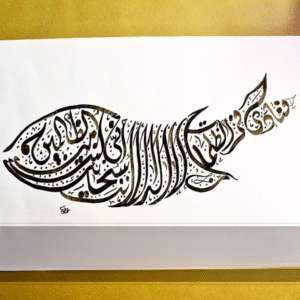 فنادى في الظلمات أن لا إله إلا أنت سبحانك إني كنت من الظالمين